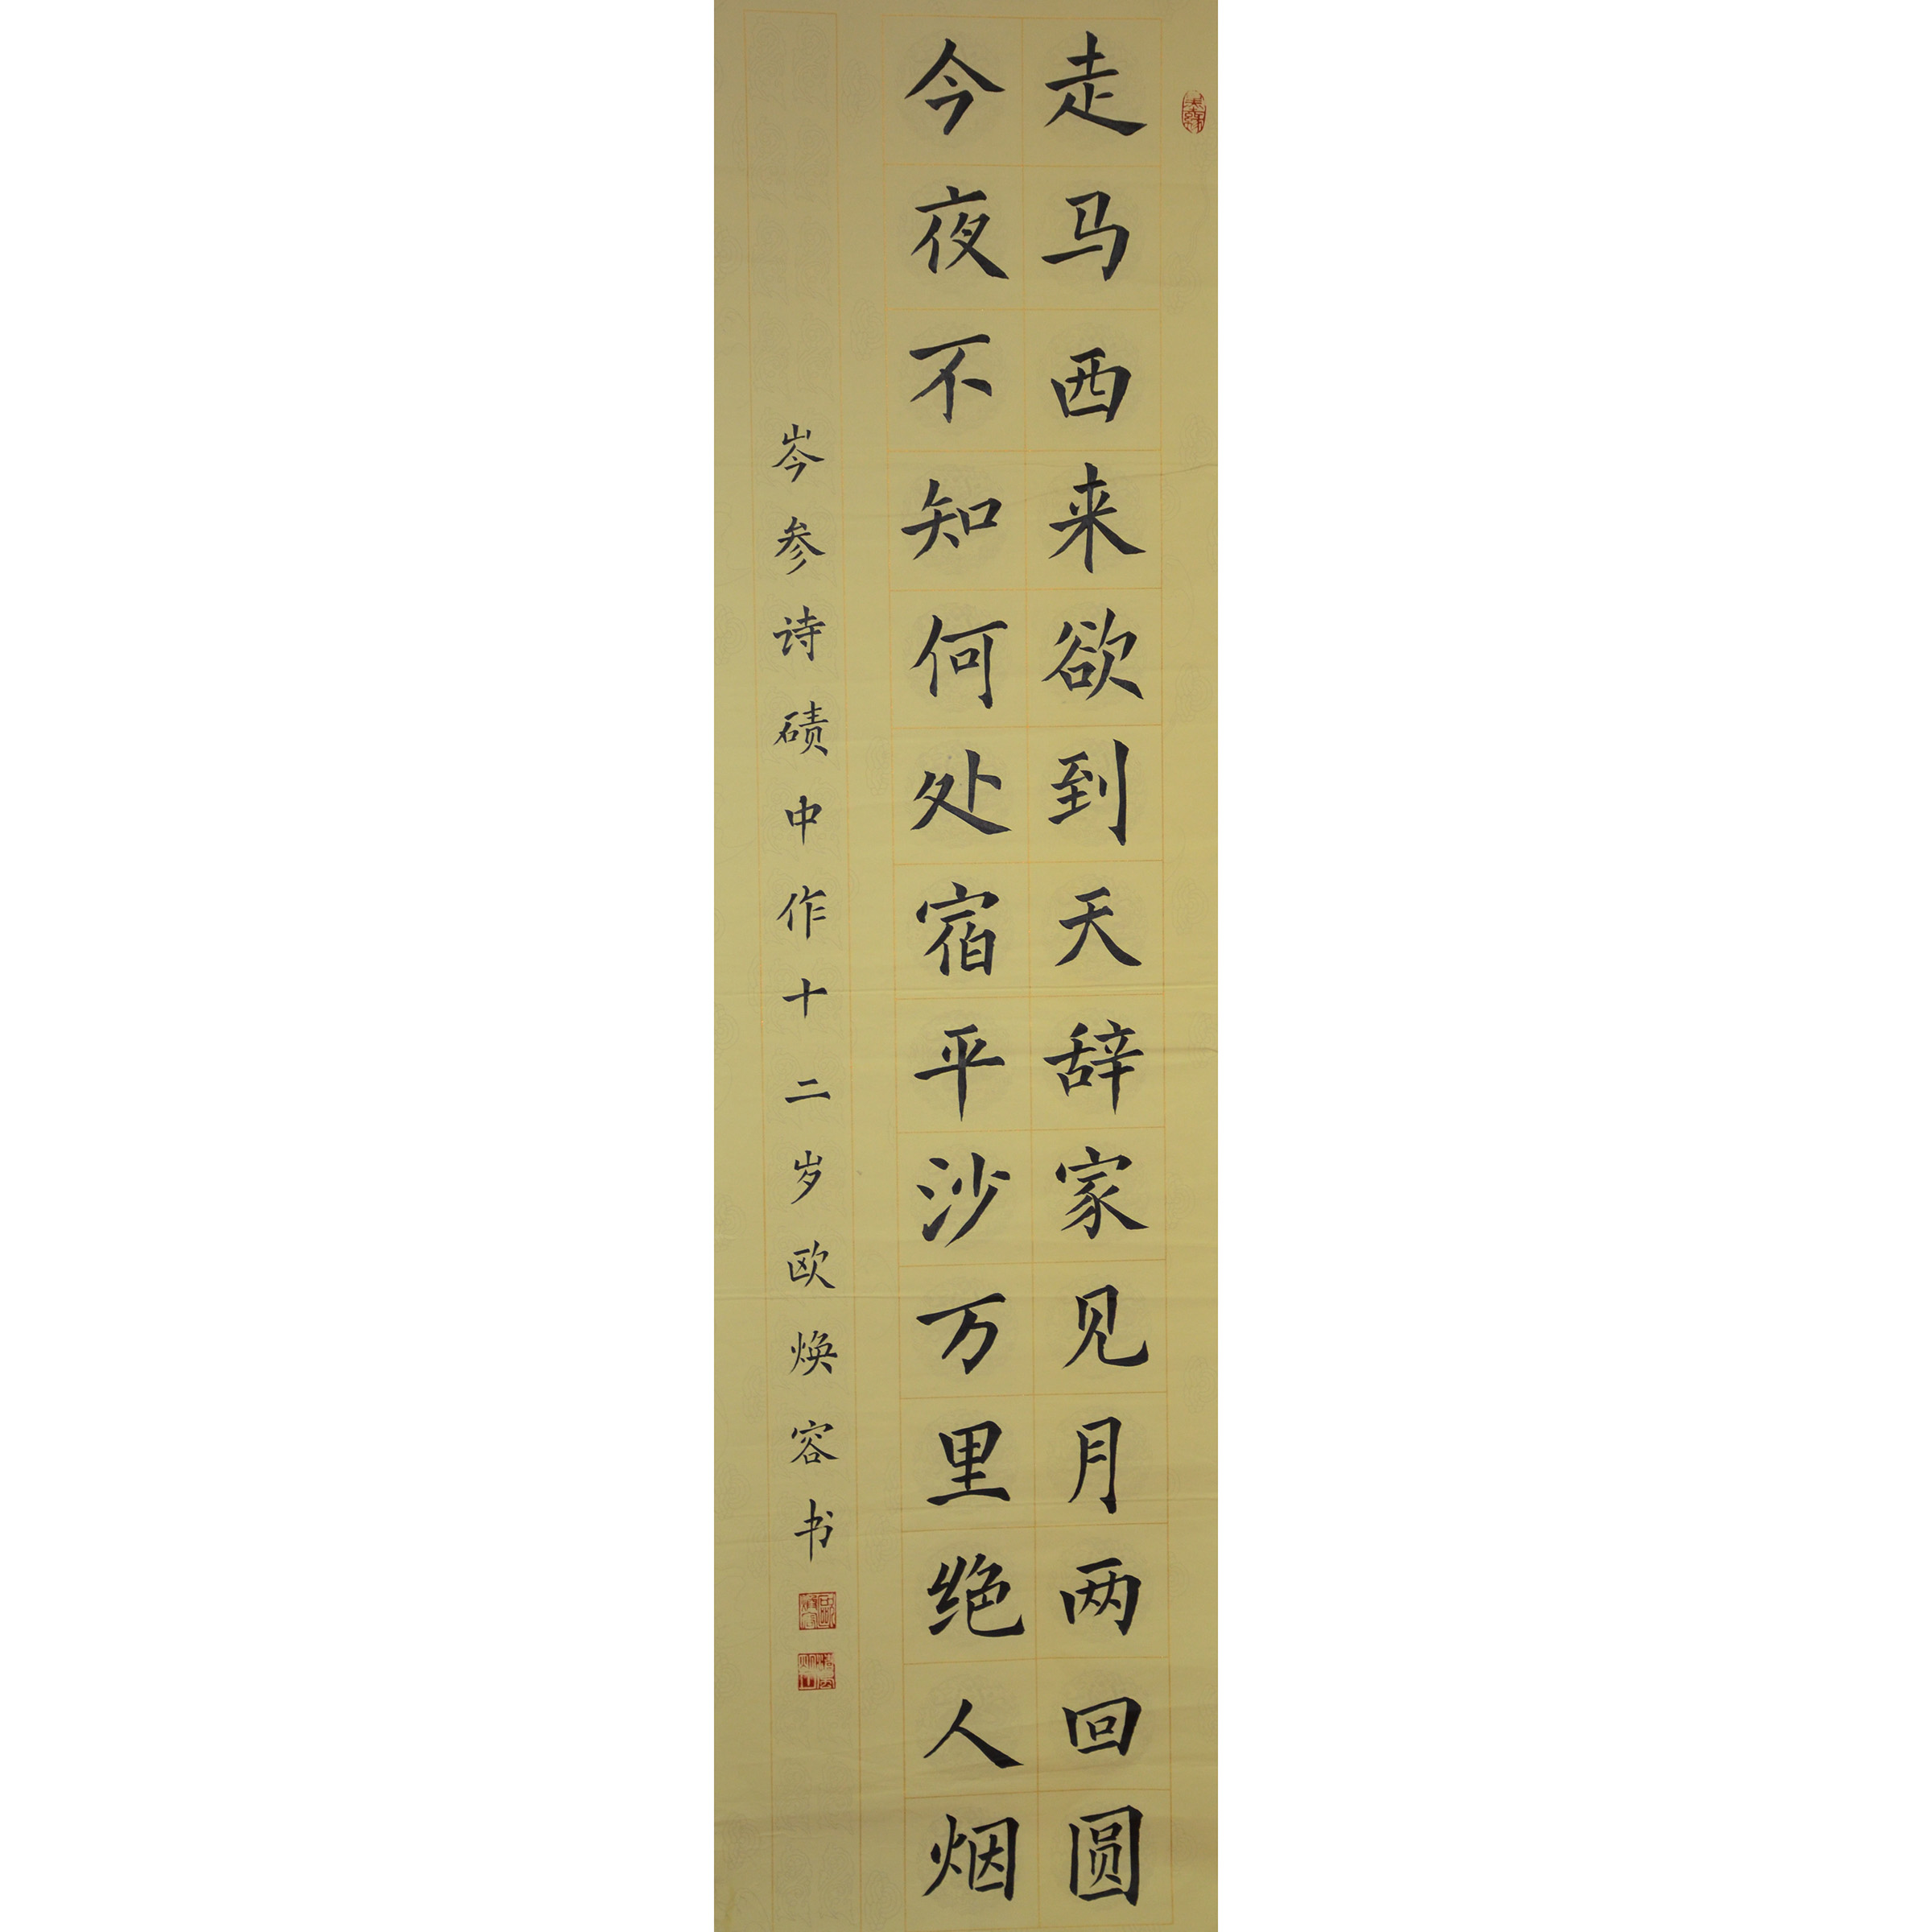 走马西来欲到天辞家见月两回圆
今夜不知何处宿平沙万里绝人烟
岑参诗碛中作十二岁欧焕容书